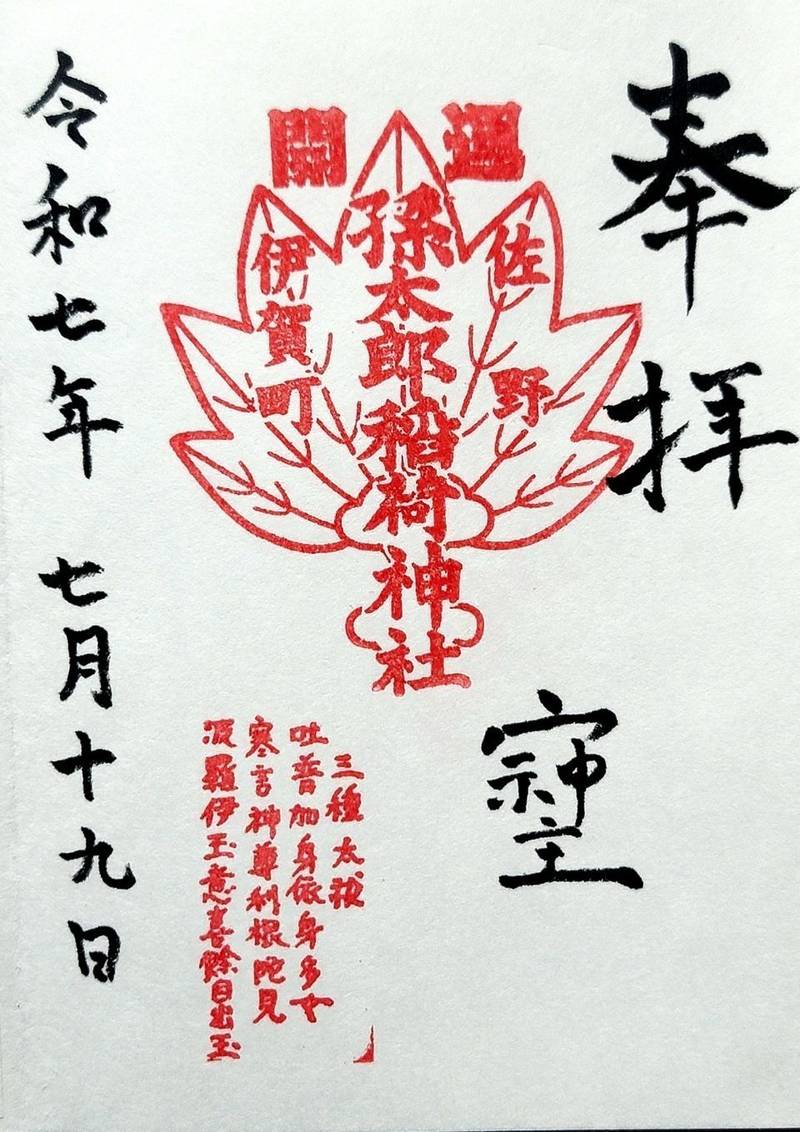 奉拝
開運
佐野
孫太郎稲荷神社
伊賀町
三種太祓
吐普加身依身多女
寒言神尊利根陀見
波羅伊玉意喜餘目出玉
令和七年 七月十九日